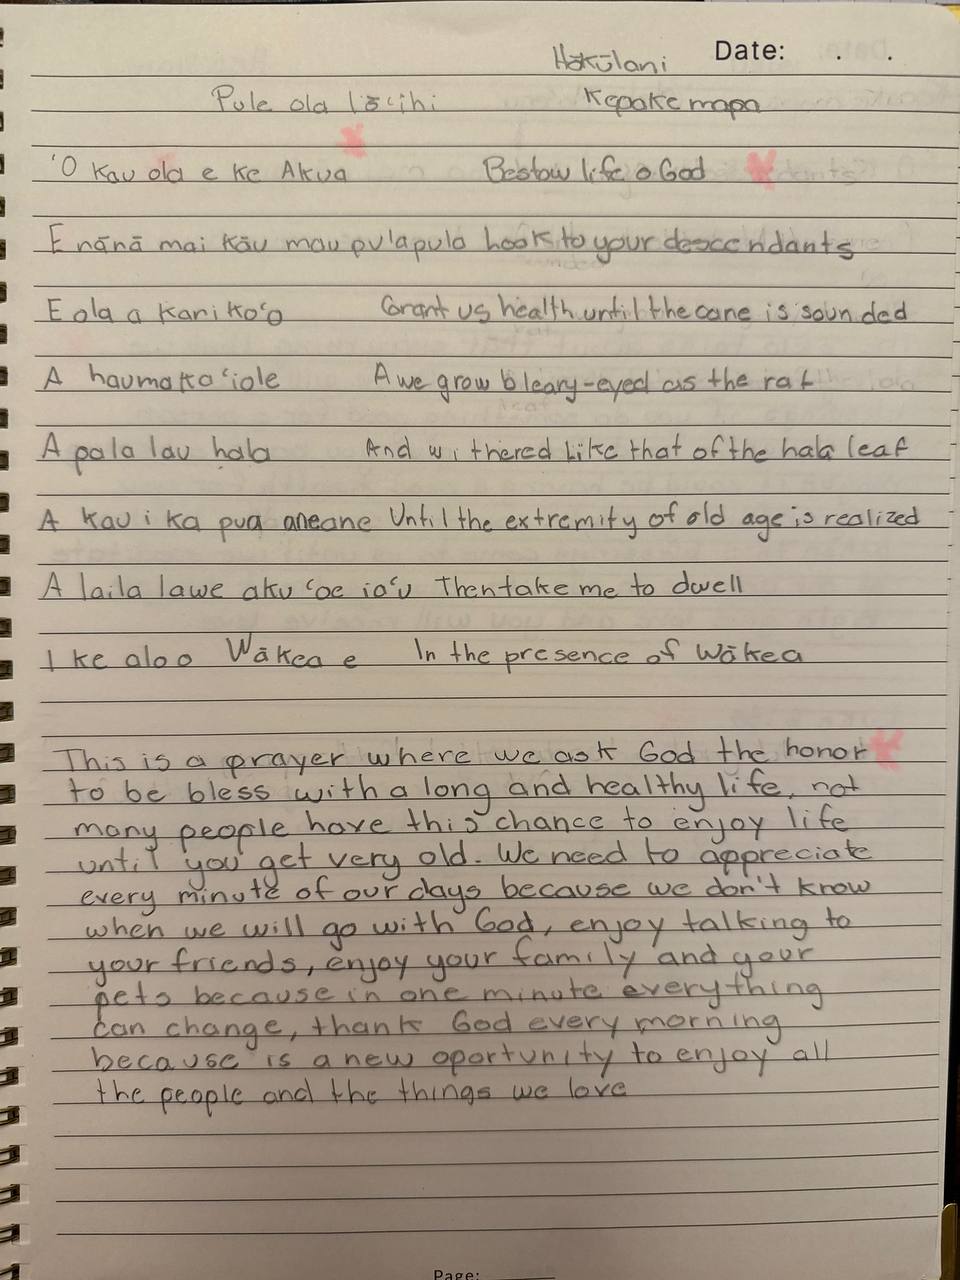 Hōkūlani Date: . .
Pule ola lōʻihi Kepakemapa
'O Kau ola e ke Akua Bestow life o God
E nānā mai Kāu mau pu'apulo hook to your descendants
E ola a Kani Ko'o Grant us health until the cane is sounded
A haumaka ʻiole A we grow bleary-eyed as the rat
A pala lau hala And withered Like that of the hala leaf
A kau i ka pua aneane Until the extremity of old age is realized
A laila lawe aku ʻoe iaʻu Then take me to dwell
I ke alo o Wākea e In the presence of Wākea
This is a prayer where we ask God the honor
to be bless with a long and healthy life, not
many people have this chance to enjoy life
until you get very old. We need to appreciate
every minute of our days because we don't know
when we will go with God, enjoy talking to
your friends, enjoy your family and your
pets because in one minute everything
can change, thank God every morning
because is a new oportunity to enjoy all
the people and the things we love
Page: